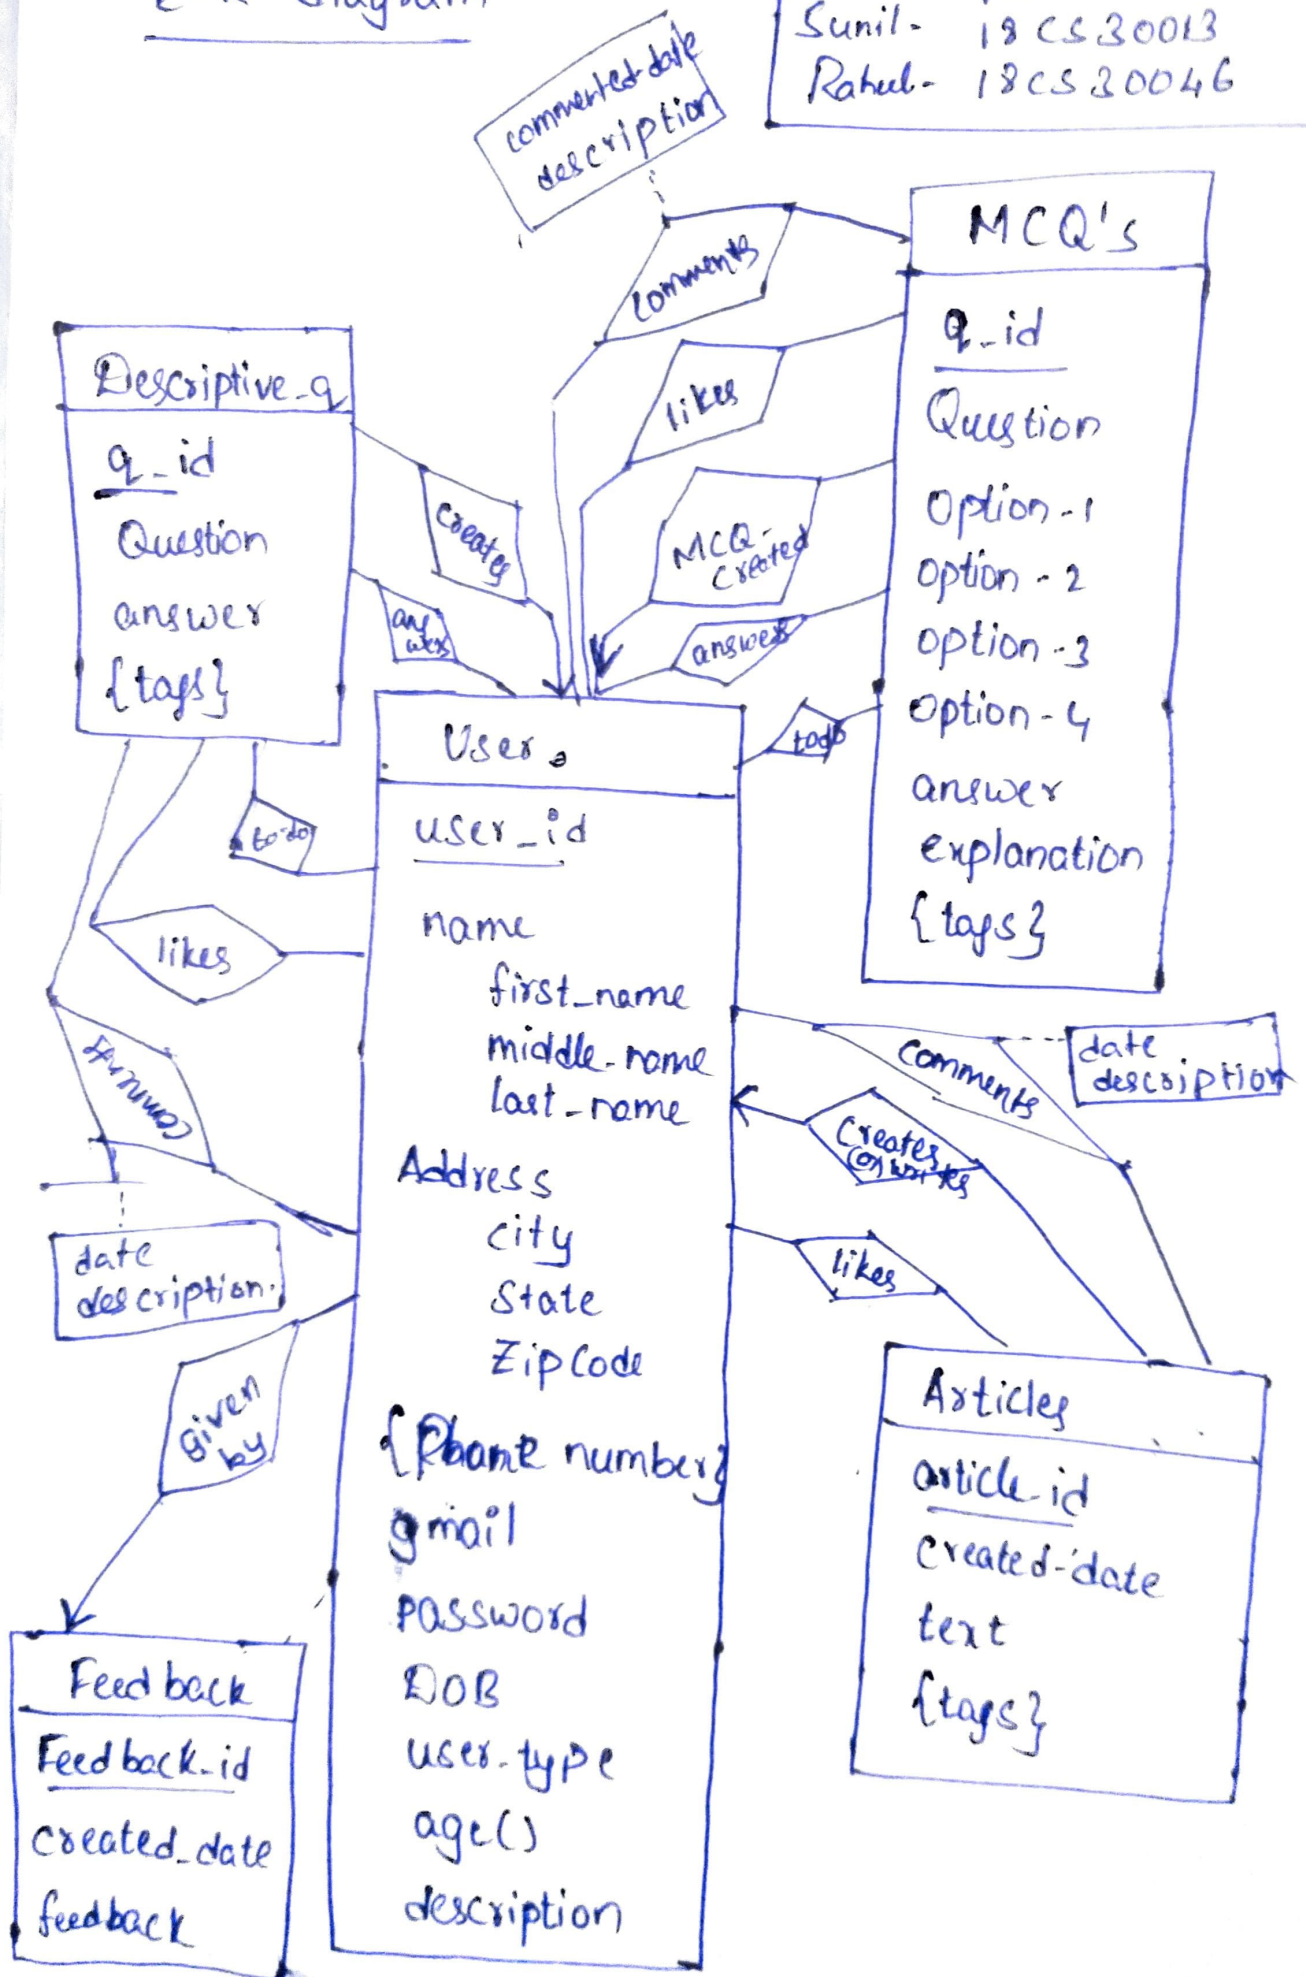 E-R Diagram
Sunil- 18CS30013
Rahul- 18CS30046
commented-date
description
comments
MCQ's
q_id
Question
option-1
option-2
option-3
option-4
answer
explanation
{tags}
likes
MCQ-
Created
answers
todo
Descriptive_q
q_id
Question
answer
{tags}
creates
ans
wers
to-do
likes
comments
date
description.
User
user_id
name
first_name
middle_name
last_name
Address
city
State
ZipCode
{Phone number}
gmail
password
DOB
user-type
age()
description
comments
date
description
Creates
(or) writes
likes
Articles
article_id
created-date
text
{tags}
given
by
Feedback
Feedback_id
created_date
feedback